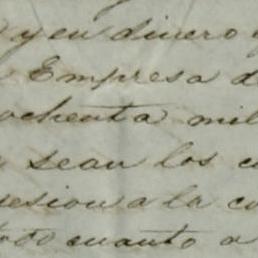 y en dinero
Empresa d
ochenta mil
sean los c
sesion a la co
todo cuanto a